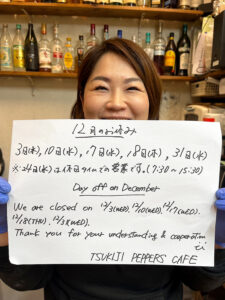 12月のお休み
3日(水), 10日(水), 17日(水), 18日(木), 31日(水)
※24日(水)は 営業です。(7:30〜15:30)
Day off on December
We are closed on 12/3(WED). 12/10(WED). 12/17(WED).
12/18(THU), 12/31(WED).
Thank you for your understanding & cooperation
TSUKIJI PEPPERS CAFE